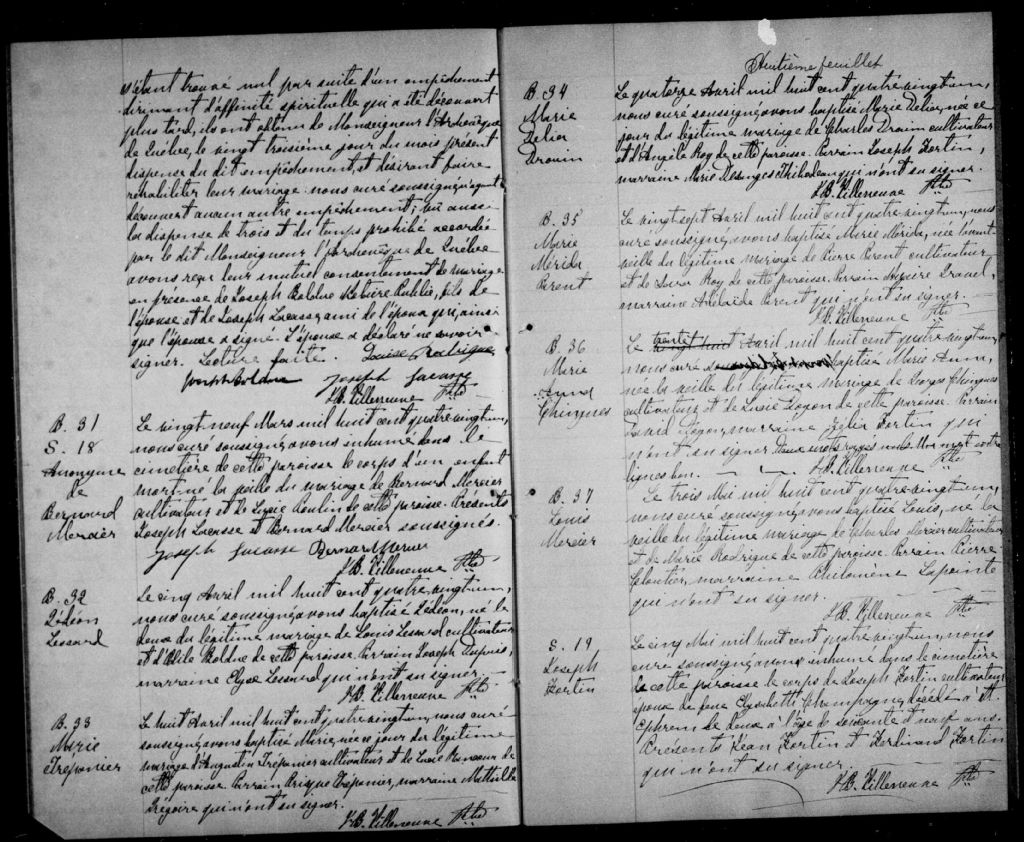 s'étant trouvé nul par suite d'un empêchement
dirimant d'affinité spirituelle qui a été découvert
plus tard, ils ont obtenu de Monseigneur l'Archevêque
de Québec, le vingt troisième jour du mois présent
dispense du dit empêchement, et désirant faire
réhabiliter leur mariage nous curé soussigné ayant
découvert aucun autre empêchement; vu aussi
la dispense de trois et du temps prohibé accordée
par le dit Monseigneur l'Archevêque de Québec
avons reçu leur mutuel consentement de mariage
en présence de Joseph Bolduc Notaire Public, fils de
l'épouse et de Joseph Lacasse ami de l'époux qui, ainsi
que l'épouse a signé. L'épouse a déclaré ne savoir
signer. Lecture faite. Louise Rodrigue
Joseph Bolduc Joseph Lacasse
J.B. Villeneuve Ptre
B. 31
S. 18
Anonyme
de
Bernard
Mercier
Le vingt neuf Mars mil huit cent quatre-vingt-un,
nous curé soussigné, avons inhumé dans le
cimetière de cette paroisse le corps d'un enfant
mort-né la veille du mariage de Bernard Mercier
cultivateur et de Lucie Poulin de cette paroisse. Présents
Joseph Lacasse et Bernard Mercier soussignés.
Joseph Lacasse Bernard Mercier
J.B. Villeneuve Ptre
B. 32
Gédéon
Lessard
Le cinq Avril mil huit cent quatre-vingt-un,
nous curé soussigné avons baptisé Gédéon, né le
deux du légitime mariage de Louis Lessard cultivateur
et d'Odile Bolduc de cette paroisse. Parrain Joseph Dupuis,
marraine Elyse Lessard qui n'ont su signer.
J.B. Villeneuve Ptre
B. 33
Marie
Trépanier
Le huit Avril mil huit cent quatre-vingt-un, nous curé
soussigné, avons baptisé Marie, née ce jour du légitime
mariage d'Augustin Trépanier cultivateur et de Lucie Rancour de
cette paroisse. Parrain Trépanier, marraine Mathilde
Grégoire qui n'ont su signer.
J.B. Villeneuve Ptre
Huitième feuillet
B 34
Marie
Délia
Drouin
Le quatorze Avril mil huit cent quatre-vingt-un,
nous curé soussigné, avons baptisé Marie Délia, née ce
jour du légitime mariage de Charles Drouin cultivateur
et d'Angèle Roy de cette paroisse. Parrain Joseph Fortin,
marraine Marie Desanges Thibodeau qui n'ont su signer.
J.B. Villeneuve Ptre
B. 35
Marie
Mérida
Parent
Le vingt sept Avril mil huit cent quatre-vingt-un, nous
curé soussigné, avons baptisé Marie Mérida, née l'avant-
veille du légitime mariage de Pierre Parent cultivateur
et de Roy de cette paroisse. Parrain
marraine Adélaïde Parent qui n'ont su signer.
J.B. Villeneuve Ptre
B. 36
Marie
Anna
Chingues
Le vingt huit trente Avril mil huit cent quatre-vingt-un,
nous curé baptisé Marie Anna,
née la veille du légitime mariage de Georges Chingues
cultivateur et de Lucie de cette paroisse. Parrain
David marraine Julie Fortin qui
n'ont su signer. Deux mots rayés nuls. Un mot entre
lignes bon.
J.B. Villeneuve Ptre
B. 37
Louis
Mercier
Le trois Mai mil huit cent quatre-vingt-un,
nous curé soussigné, avons baptisé Louis, né la
veille du légitime mariage de Charles Mercier cultivateur
et de Marie Rodrigue de cette paroisse. Parrain Pierre
Cloutier, marraine Philomène Lapointe
qui n'ont su signer.
J.B. Villeneuve Ptre
S. 19
Joseph
Fortin
Le cinq Mai mil huit cent quatre-vingt-un, nous
curé soussigné, avons inhumé dans le cimetière
de cette paroisse le corps de Joseph Fortin cultivateur
époux de feue Elisabeth Champagne, décédé à St
Ephrem de à l'âge de soixante et neuf ans.
Présents Jean Fortin et Ferdinand Fortin
qui n'ont su signer.
J.B. Villeneuve Ptre